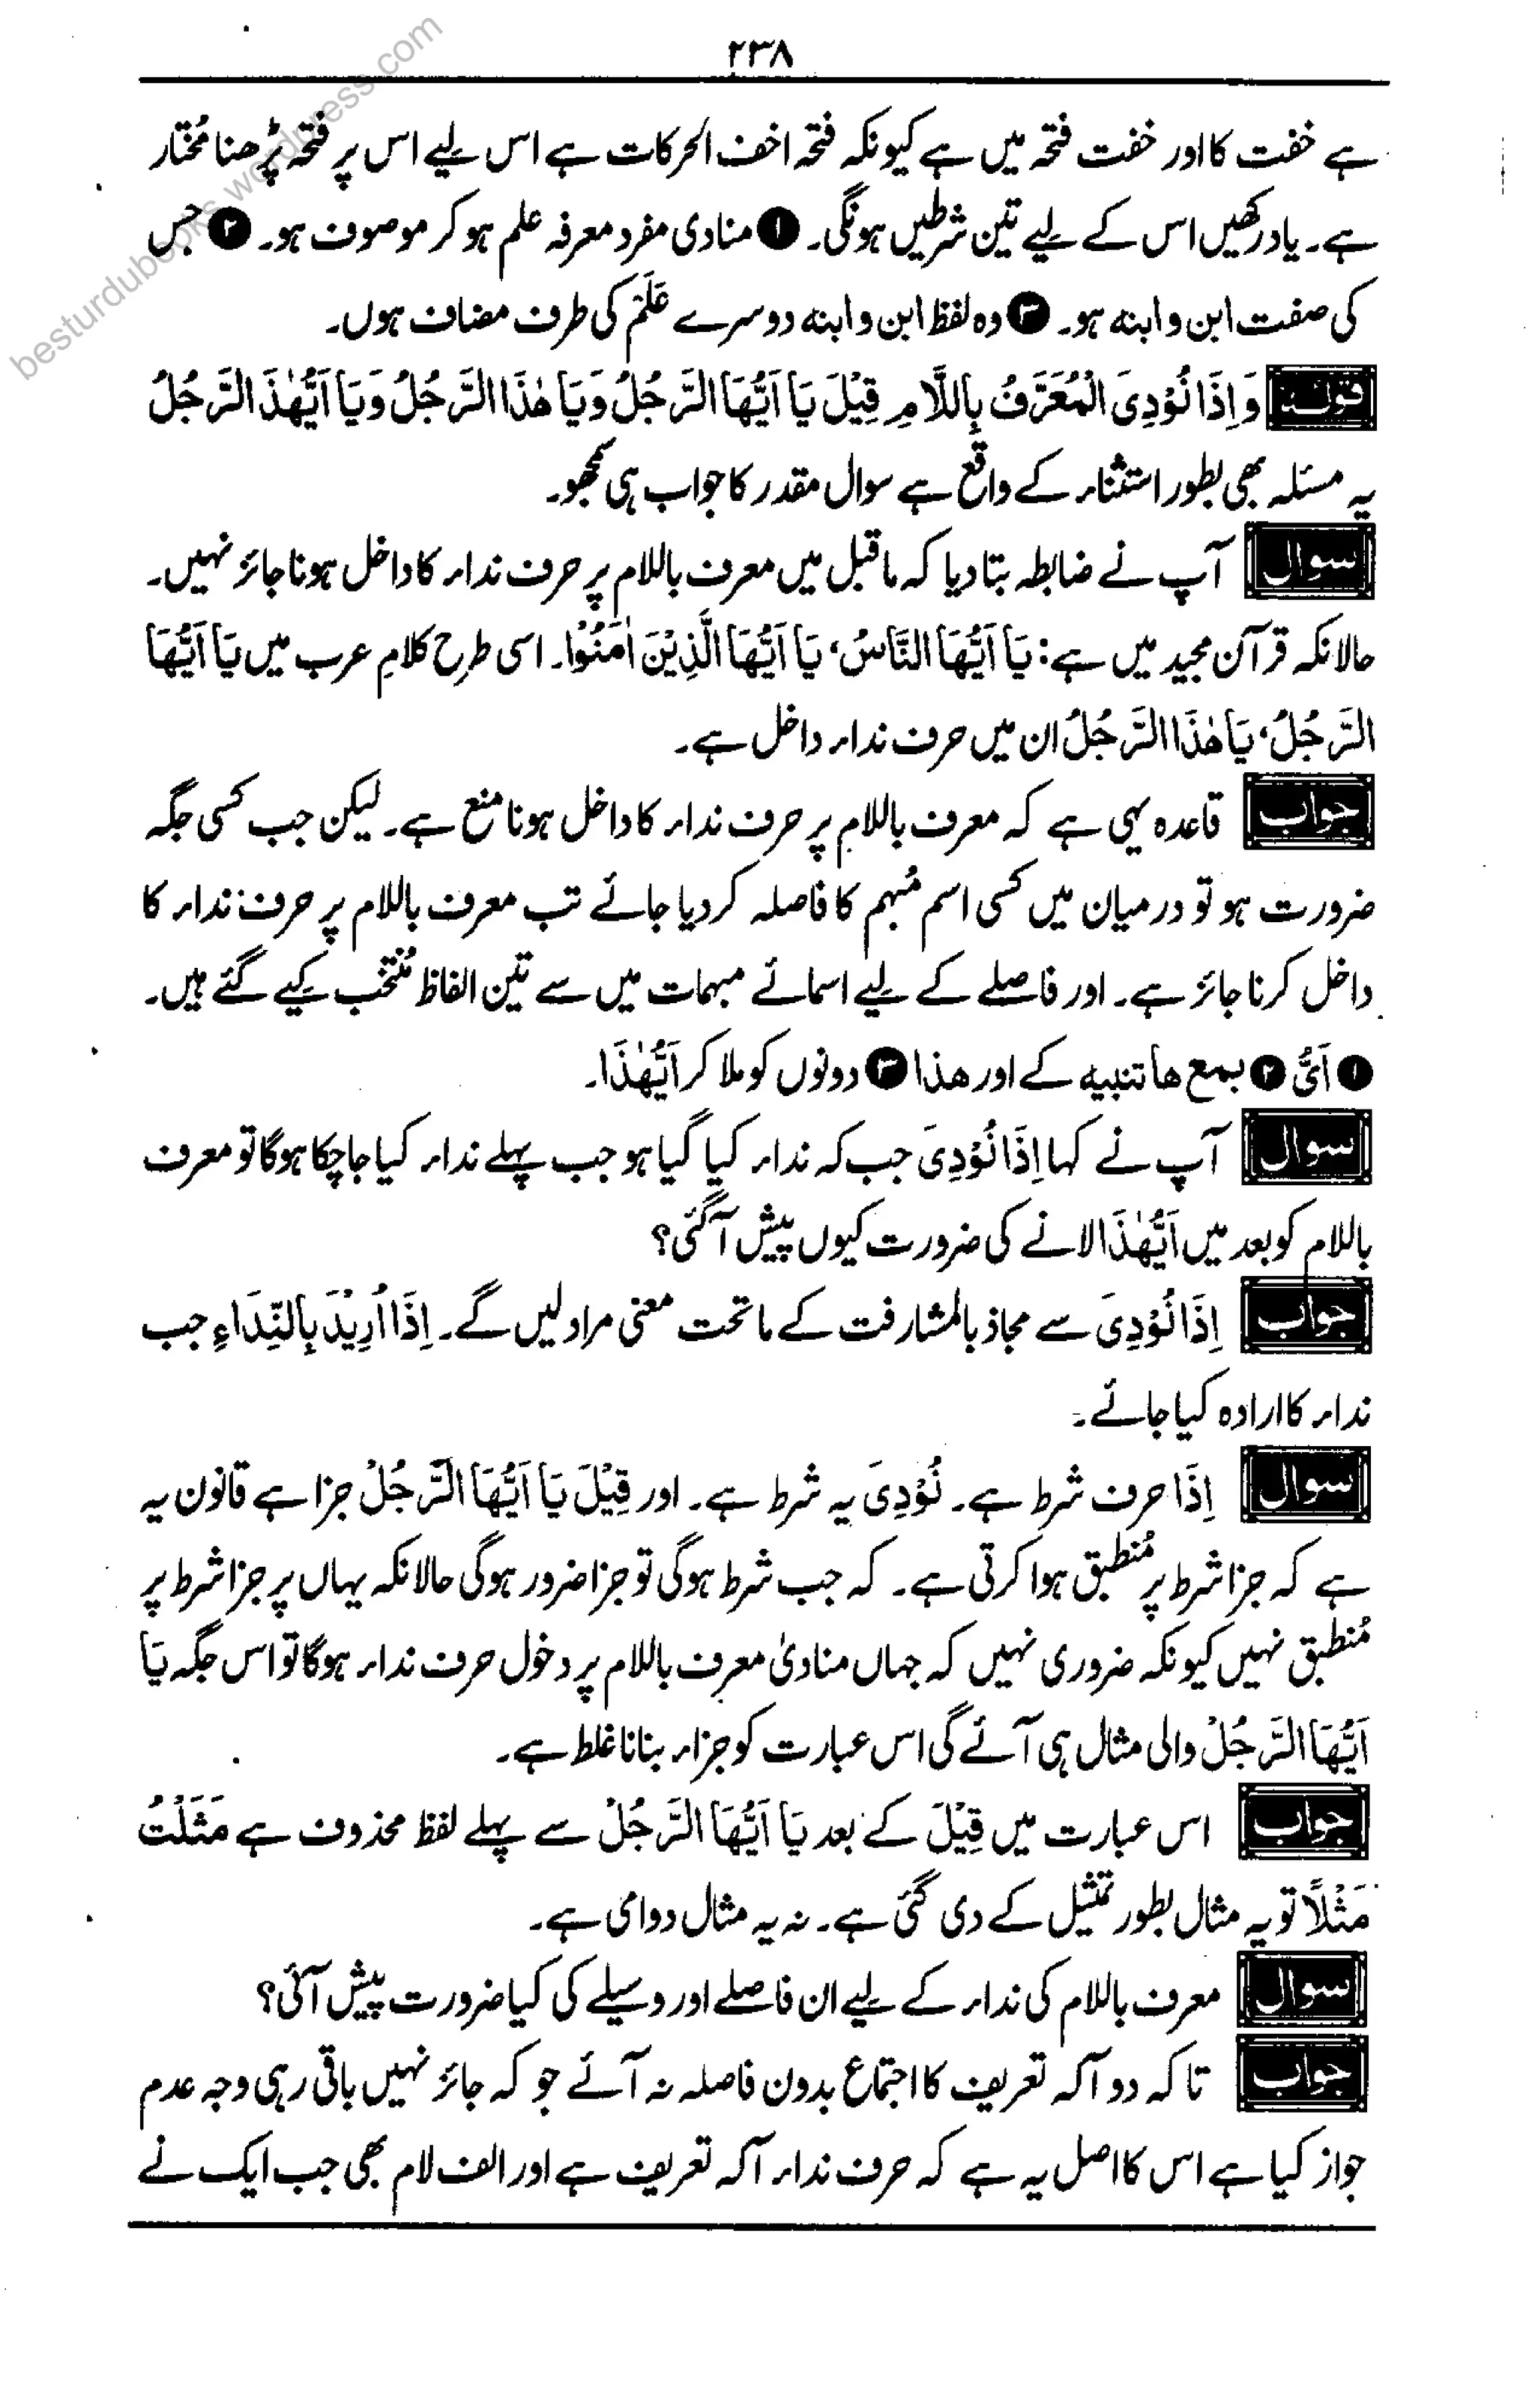 ۲۳۸
ہے خفت کا اور خفت فتحہ میں ہے کیونکہ فتحہ اخف الحرکات ہے اس لیے اس پر فتحہ پڑھنا مُختار
ہے۔ یاد رکھیں اس کے لیے تین شرطیں ہونگی۔ ❶ منادی مفرد معرفہ علم ہو کر موصوف ہو۔ ❷ جس
کی صفت ابن و ابنه ہو۔ ❸ وہ لفظ ابن و ابنه دوسرے عَلَم کی طرف مضاف ہوں۔
قولہ وَ اِذَا نُوْدِیَ الْمُعَرَّفُ بِاللَّامِ قِیْلَ یَا اَیُّهَا الرَّجُلُ وَ یَا هٰذَا الرَّجُلُ وَ یَا اَیُّهٰذَا الرَّجُلُ
یہ مسئلہ بھی بطور استثناء کے واقع ہے سوال مقدر کا جواب ہی سمجھو۔
سوال آپ نے ضابطہ بتا دیا کہ ماقبل میں معرف باللام پر حرف نداء کا داخل ہونا جائز نہیں۔
حالانکہ قرآن مجید میں ہے: یَا اَیُّهَا النَّاسُ، یَا اَیُّهَا الَّذِیْنَ اٰمَنُوْا۔ اسی طرح کلامِ عرب میں یَا اَیُّهَا
الرَّجُلُ، یَا هٰذَا الرَّجُلُ ان میں حرف نداء داخل ہے۔
جواب قاعدہ یہی ہے کہ معرف باللام پر حرف نداء کا داخل ہونا منع ہے۔ لیکن جب کسی جگہ
ضرورت ہو تو درمیان میں کسی اسم مُبہم کا فاصلہ کر دیا جائے تب معرف باللام پر حرف نداء کا
داخل کرنا جائز ہے۔ اور فاصلے کے لیے اسمائے مبہمات میں سے تین الفاظ مُنتخب کیے گئے ہیں۔
❶ اَیُّ ❷ بمع ها تنبیه کے اور هذا ❸ دونوں کو ملا کر اَیُّهٰذَا۔
سوال آپ نے کہا اِذَا نُوْدِیَ جب کہ نداء کیا گیا ہو جب پہلے نداء کیا جا چکا ہو گا تو معرف
باللام کو بعد میں اَیُّهٰذَا لانے کی ضرورت کیوں پیش آ گئی؟
جواب اِذَا نُوْدِیَ سے مجاز بالمشارفت کے ماتحت معنی مراد لیں گے۔ اِذَا اُرِیْدَ بِالنِّدَاءِ جب
نداء کا ارادہ کیا جائے۔
سوال اِذَا حرف شرط ہے۔ نُوْدِیَ یہ شرط ہے۔ اور قِیْلَ یَا اَیُّهَا الرَّجُلُ جزا ہے قانون یہ
ہے کہ جزا شرط پر مُنطبق ہوا کرتی ہے۔ کہ جب شرط ہو گی تو جزا ضرور ہو گی حالانکہ یہاں پر جزا شرط پر
مُنطبق نہیں کیونکہ ضروری نہیں کہ جہاں منادیٰ معرف باللام پر دخول حرف نداء ہو گا تو اس جگہ یَا
اَیُّهَا الرَّجُلُ والی مثال ہی آئے گی اس عبارت کو جزاء بنانا غلط ہے۔
جواب اس عبارت میں قِیْلَ کے بعد یَا اَیُّهَا الرَّجُلُ سے پہلے لفظ محذوف ہے مَثَلْتُ
مَثْلاً تو یہ مثال بطور تمثیل کے دی گئی ہے۔ نہ یہ مثال دوامی ہے۔
سوال معرف باللام کی نداء کے لیے ان فاصلے اور وسیلے کی کیا ضرورت پیش آئی؟
جواب تاکہ دو آلہ تعریف کا اجتماع بدون فاصلہ نہ آئے جو کہ جائز نہیں باقی رہی وجہ عدم
جواز کیا ہے اس کا اصل یہ ہے کہ حرف نداء آلہ تعریف ہے اور الف لام بھی جب ایک نے
besturdubooks.wordpress.com